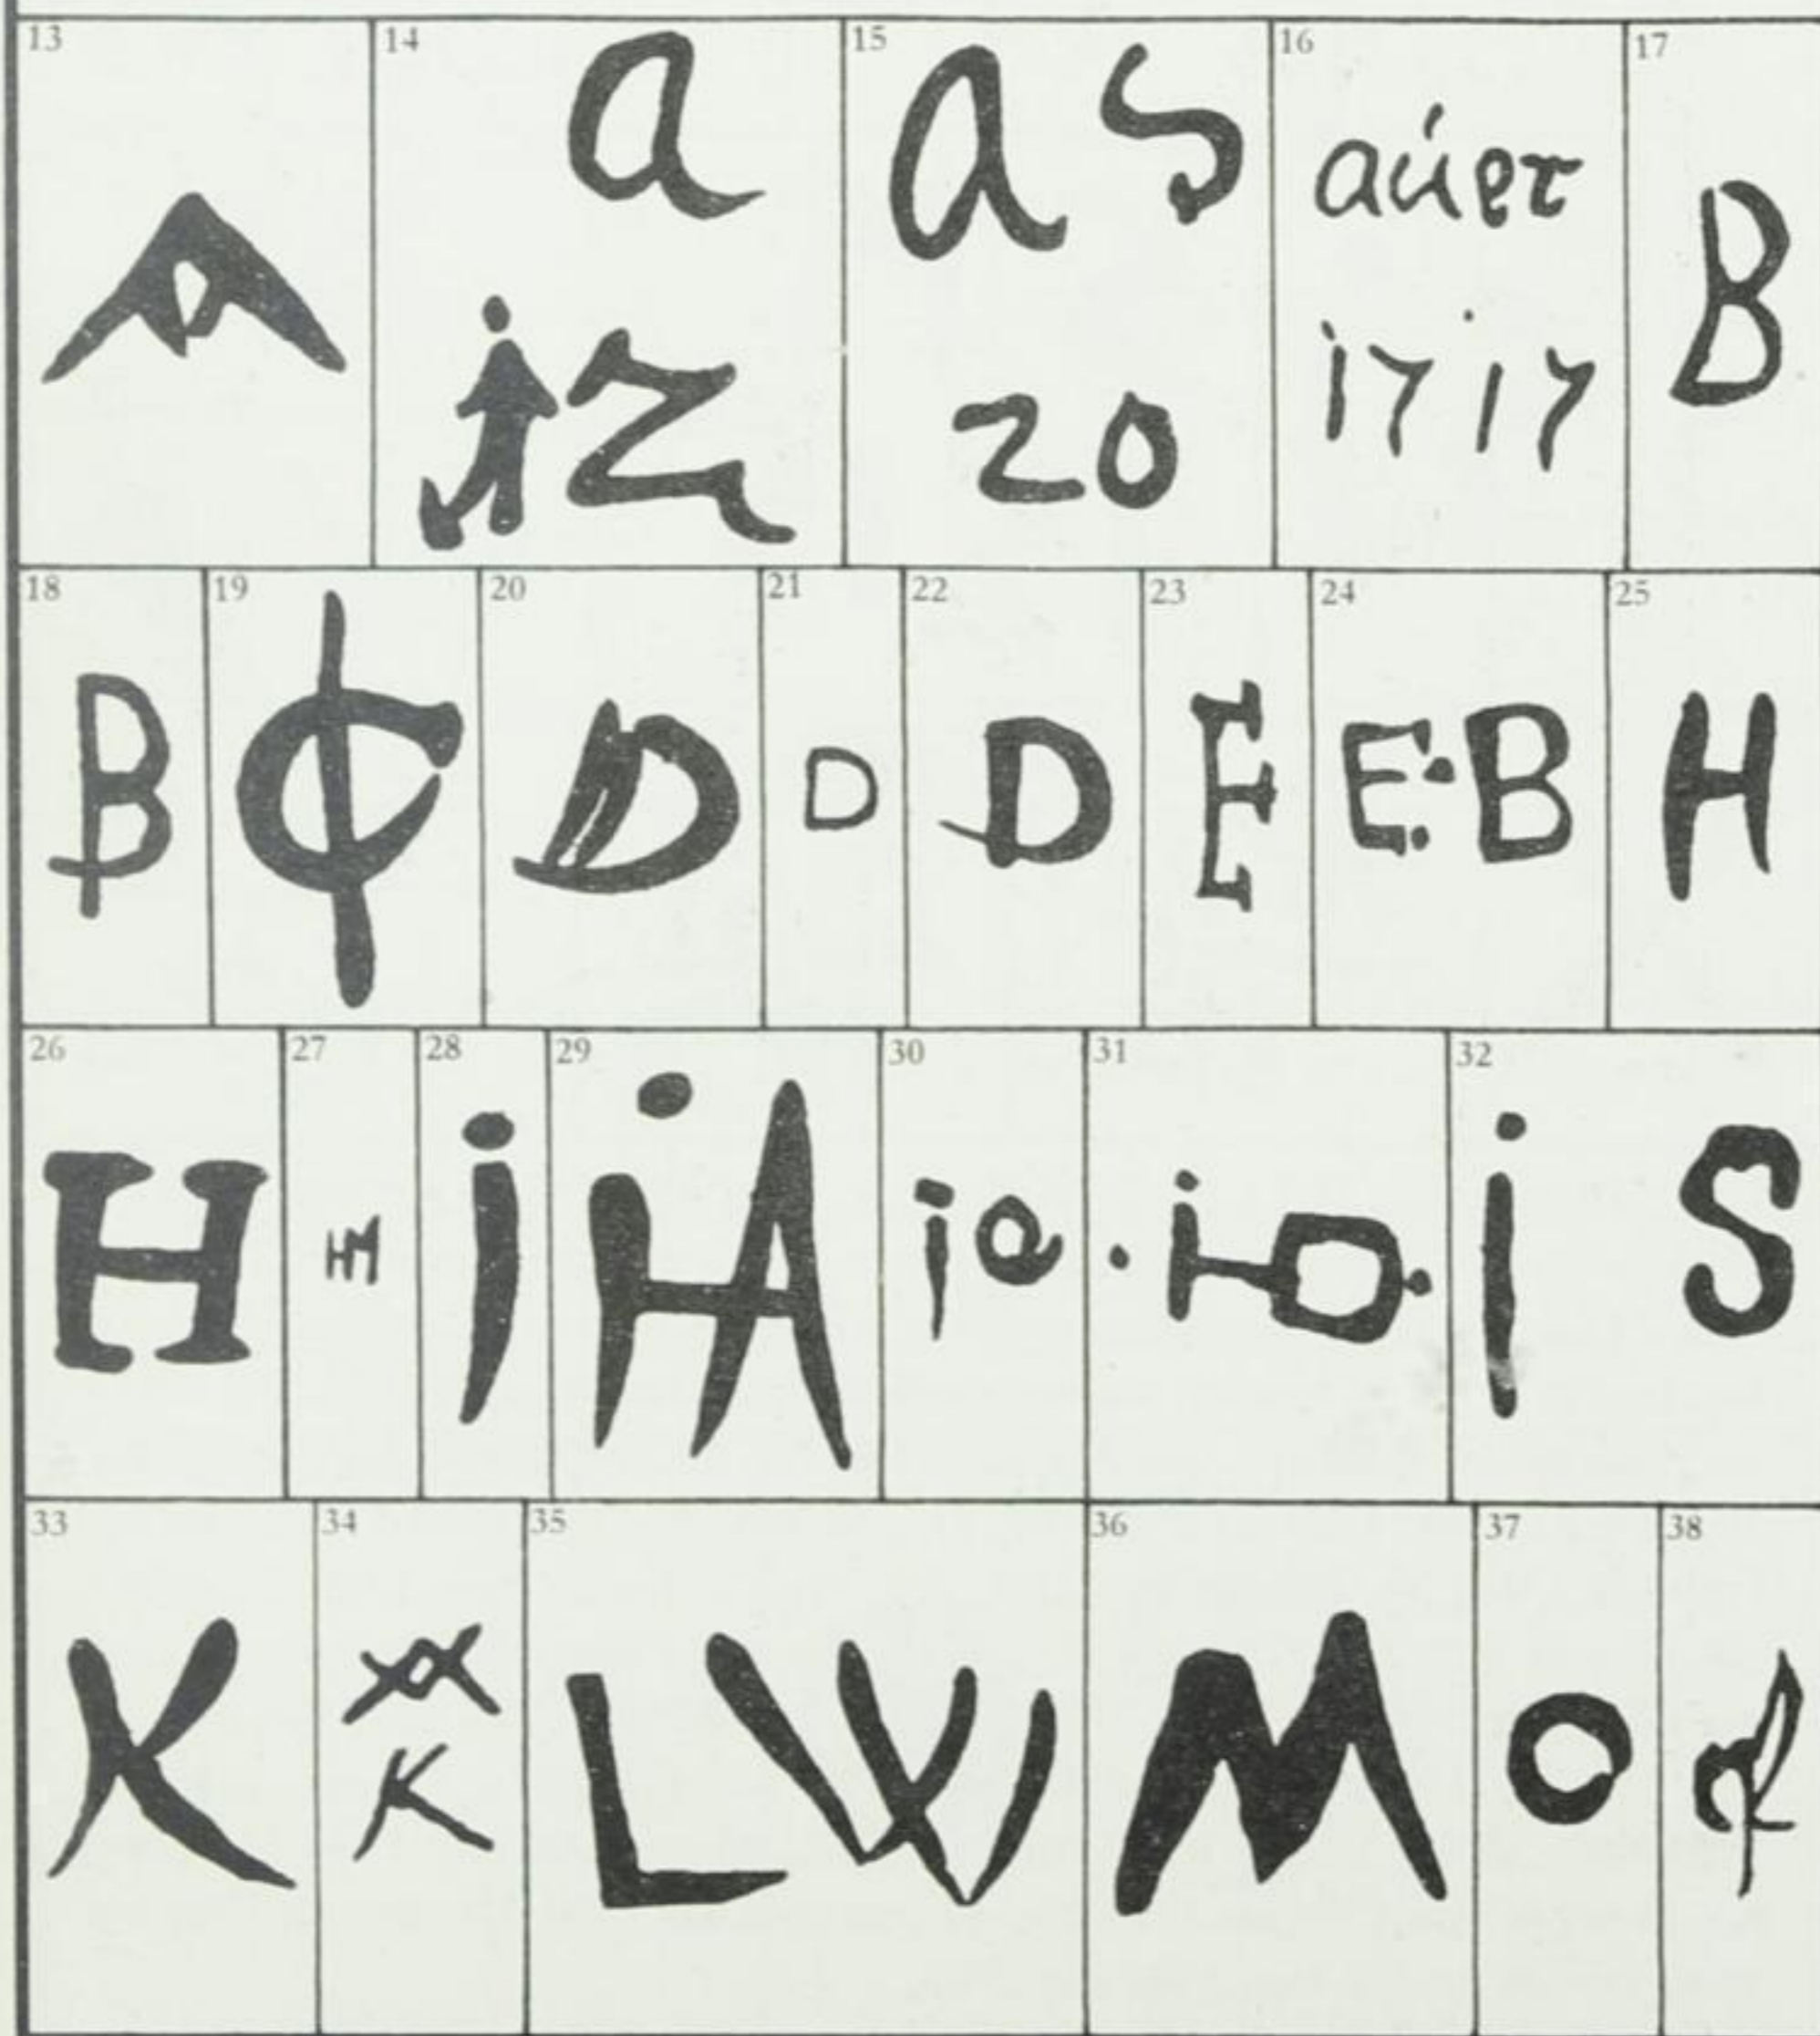 13
14
a
iZ
15
a S
20
16
αύρτ
1717
17
B
18
B
19
20
D
21
D
22
D
23
E
24
E:B
25
H
26
H
27
28
i
29
iHA
30
ia
31
32
i S
33
K
34
K
35
L W
36
M
37
O
38